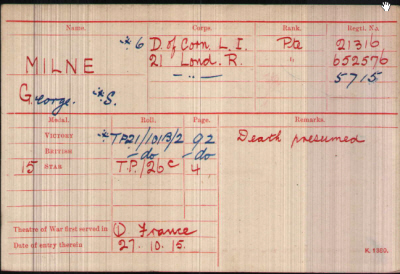 Name. Corps. Rank. Regtl. No.
*6 D. of Corn. L. I. Pte 21316
MILNE 21 Lond. R. " 652576
— " — 5715
George. *S.
Medal. Roll. Page. Remarks.
VICTORY *TP21/101B/2 92 Death presumed
BRITISH — do — do
15 STAR T.P./26c 4
Theatre of War first served in (1) France
Date of entry therein 27. 10. 15.
K. 1380.